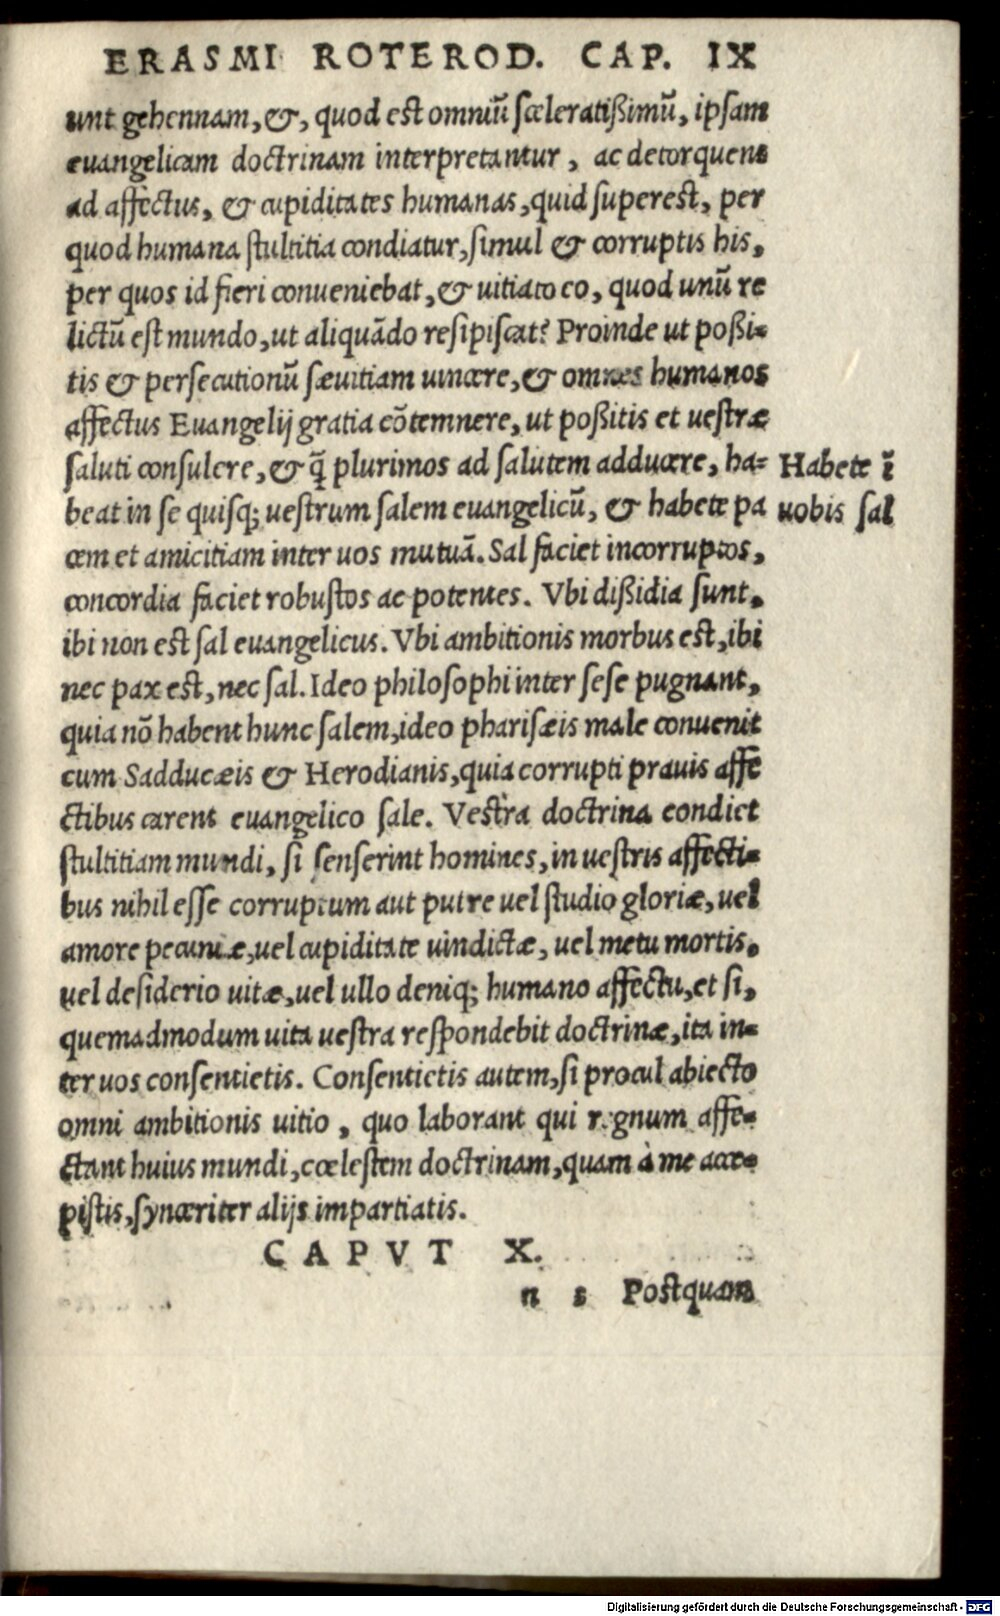 ERASMI ROTEROD. CAP. IX
unt gehennam, &, quod est omniū sceleratißimū, ipsam
euangelicam doctrinam interpretantur, ac detorquent
ad affectus, & cupiditates humanas, quid superest, per
quod humana stultitia condiatur, simul & corruptis his,
per quos id fieri conueniebat, & uitiato eo, quod unū re
lictū est mundo, ut aliquādo resipiscat? Proinde ut poßi-
tis & persecutionū sæuitiam uincere, & omnes humanos
affectus Euangelij gratia cōtemnere, ut poßitis et uestræ
saluti consulere, & q̄ plurimos ad salutem adducere, ha-
beat in se quisq; uestrum salem euangelicū, & habete pa
cem et amicitiam inter uos mutuā. Sal faciet incorruptos,
concordia faciet robustos ac potentes. Vbi dißidia sunt,
ibi non est sal euangelicus. Vbi ambitionis morbus est, ibi
nec pax est, nec sal. Ideo philosophi inter sese pugnant,
quia nō habent hunc salem, ideo pharisæis male conuenit
cum Sadducæis & Herodianis, quia corrupti prauis affe
ctibus carent euangelico sale. Vestra doctrina condiet
stultitiam mundi, si senserint homines, in uestris affecti-
bus nihil esse corruptum aut putre uel studio gloriæ, uel
amore pecuniæ, uel cupiditate uindictæ, uel metu mortis,
uel desiderio uitæ, uel ullo deniq; humano affectu, et si,
quemadmodum uita uestra respondebit doctrinæ, ita in-
ter uos consentietis. Consentietis autem, si procul abiecto
omni ambitionis uitio, quo laborant qui regnum affe-
ctant huius mundi, cœlestem doctrinam, quam à me acce-
pistis, synceriter alijs impartiatis.
CAPVT X.
n s Postquam
Habete ī
uobis sal
Digitalisierung gefördert durch die Deutsche Forschungsgemeinschaft - DFG